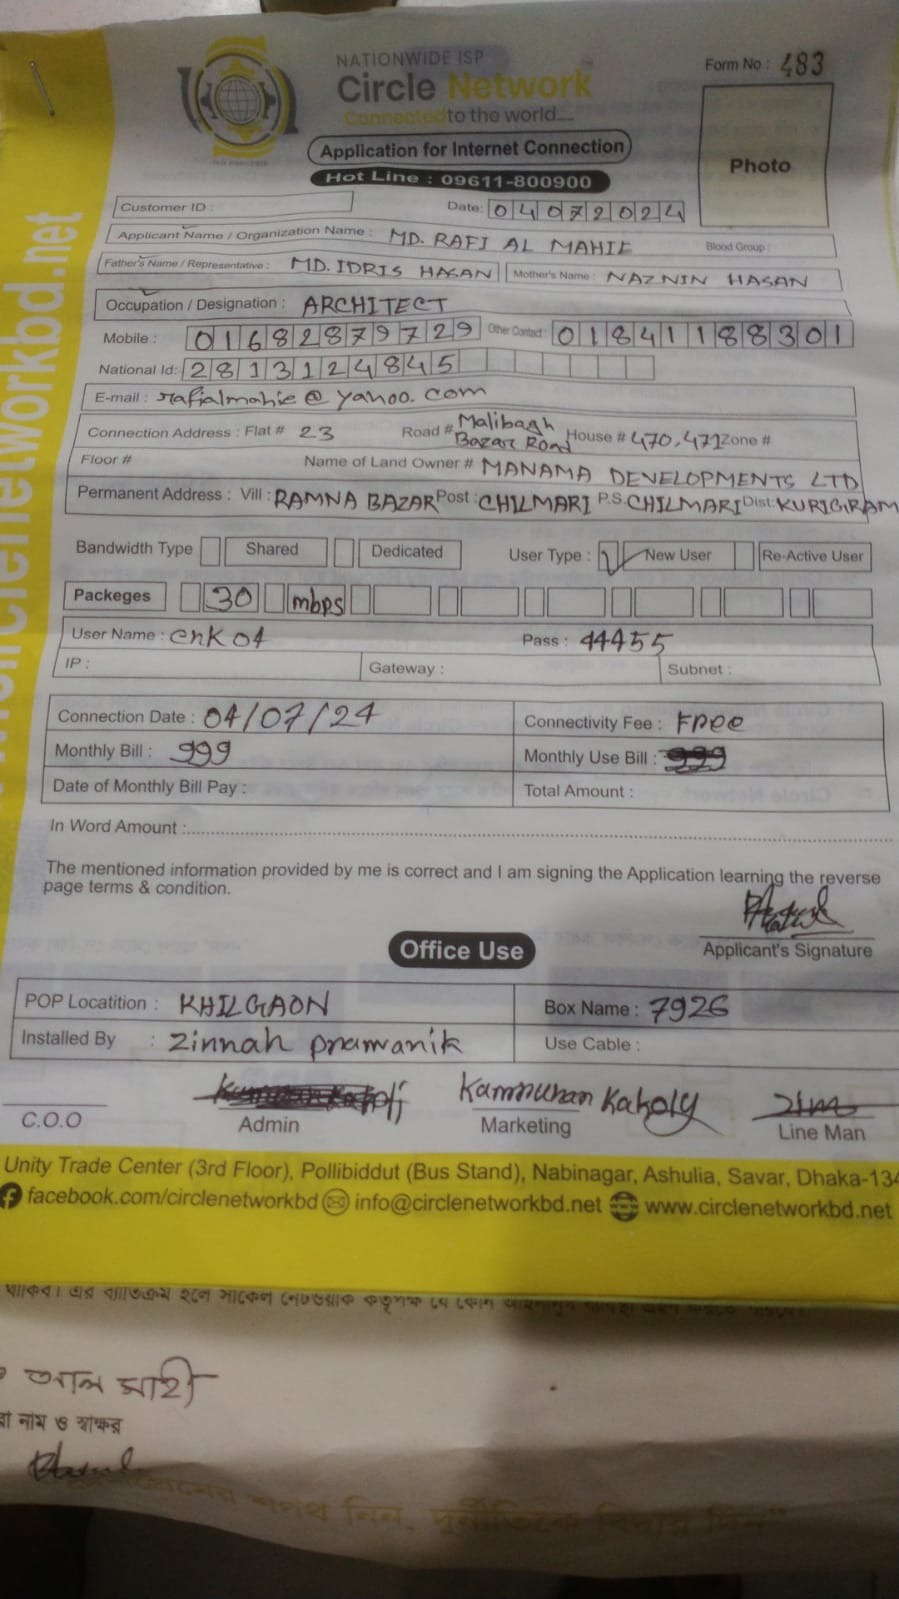 NATIONWIDE ISP
Circle Network
Connected to the world....
Form No : 483
Photo
Application for Internet Connection
Hot Line : 09611-800900
Customer ID :
Date: 04072024
Applicant Name / Organization Name : MD. RAFI AL MAHIE Blood Group :
Father's Name / Representative : MD. IDRIS HASAN Mother's Name : NAZNIN HASAN
Occupation / Designation : ARCHITECT
Mobile : 01682879729 Other Contact : 01841188301
National Id: 2813124845
E-mail : rafialmahie@yahoo.com
Connection Address : Flat # 23 Road # Malibagh Bazar Road House # 470,471 Zone #
Floor # Name of Land Owner # MANAMA DEVELOPMENTS LTD
Permanent Address : Vill : RAMNA BAZAR Post : CHILMARI P.S. CHILMARI Dist: KURIGRAM
Bandwidth Type Shared Dedicated User Type : New User Re-Active User
Packeges 30 mbps
User Name : cnk04 Pass : 44455
IP : Gateway : Subnet :
Connection Date : 04/07/24 Connectivity Fee : Free
Monthly Bill : 999 Monthly Use Bill : 999
Date of Monthly Bill Pay : Total Amount :
In Word Amount :
The mentioned information provided by me is correct and I am signing the Application learning the reverse
page terms & condition.
Applicant's Signature
Office Use
POP Locatition : KHILGAON Box Name : 7926
Installed By : Zinnah pramanik Use Cable :
Kamruhan Kakoly
C.O.O Admin Marketing Line Man
Unity Trade Center (3rd Floor), Pollibiddut (Bus Stand), Nabinagar, Ashulia, Savar, Dhaka-134
facebook.com/circlenetworkbd info@circlenetworkbd.net www.circlenetworkbd.net
circlenetworkbd.net
থাকিব। এর ব্যতিক্রম হলে সার্কেল নেটওয়ার্ক কর্তৃপক্ষ যে কোন
আল মাহী
নাম ও স্বাক্ষর
শপথ নিন, দুর্নীতিকে বিদায় দিন"